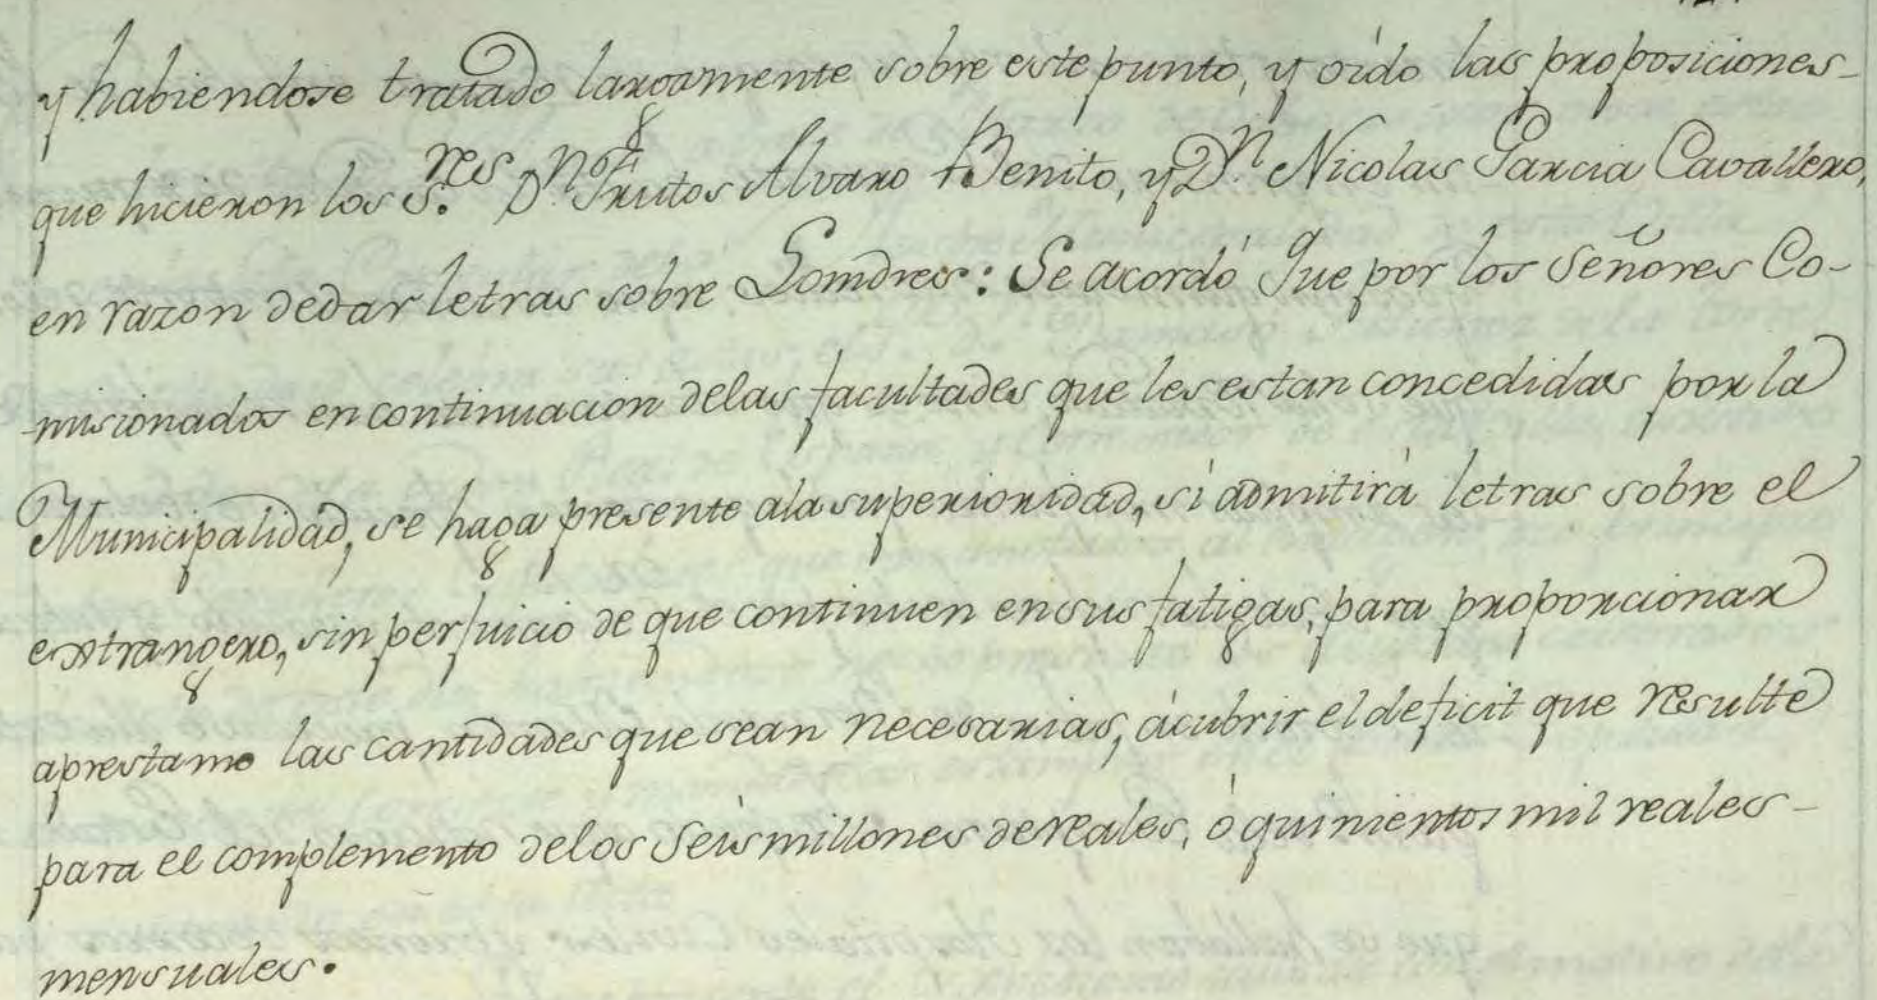 y habiendose tratado largamente sobre este punto, y oído las proposiciones
que hicieron los S.res D.n Frutos Alvaro Benito, y D.n Nicolas Garcia Cavallero,
en razon dedar letras sobre Lomdres: Se acordó Que por los Señores Co-
misionados en continuacion delas facultades que les estan concedidas por la
Municipalidad, se haga presente ala superioridad, si admitirá letras sobre el
extrangero, sin perjuicio de que continuen ensus fatigas, para proporcionar
aprestamo las cantidades que sean necesarias, ácubrir el deficit que resulte
para el complemento delos Seis millones dereales, ó quinientos mil reales
mensuales.